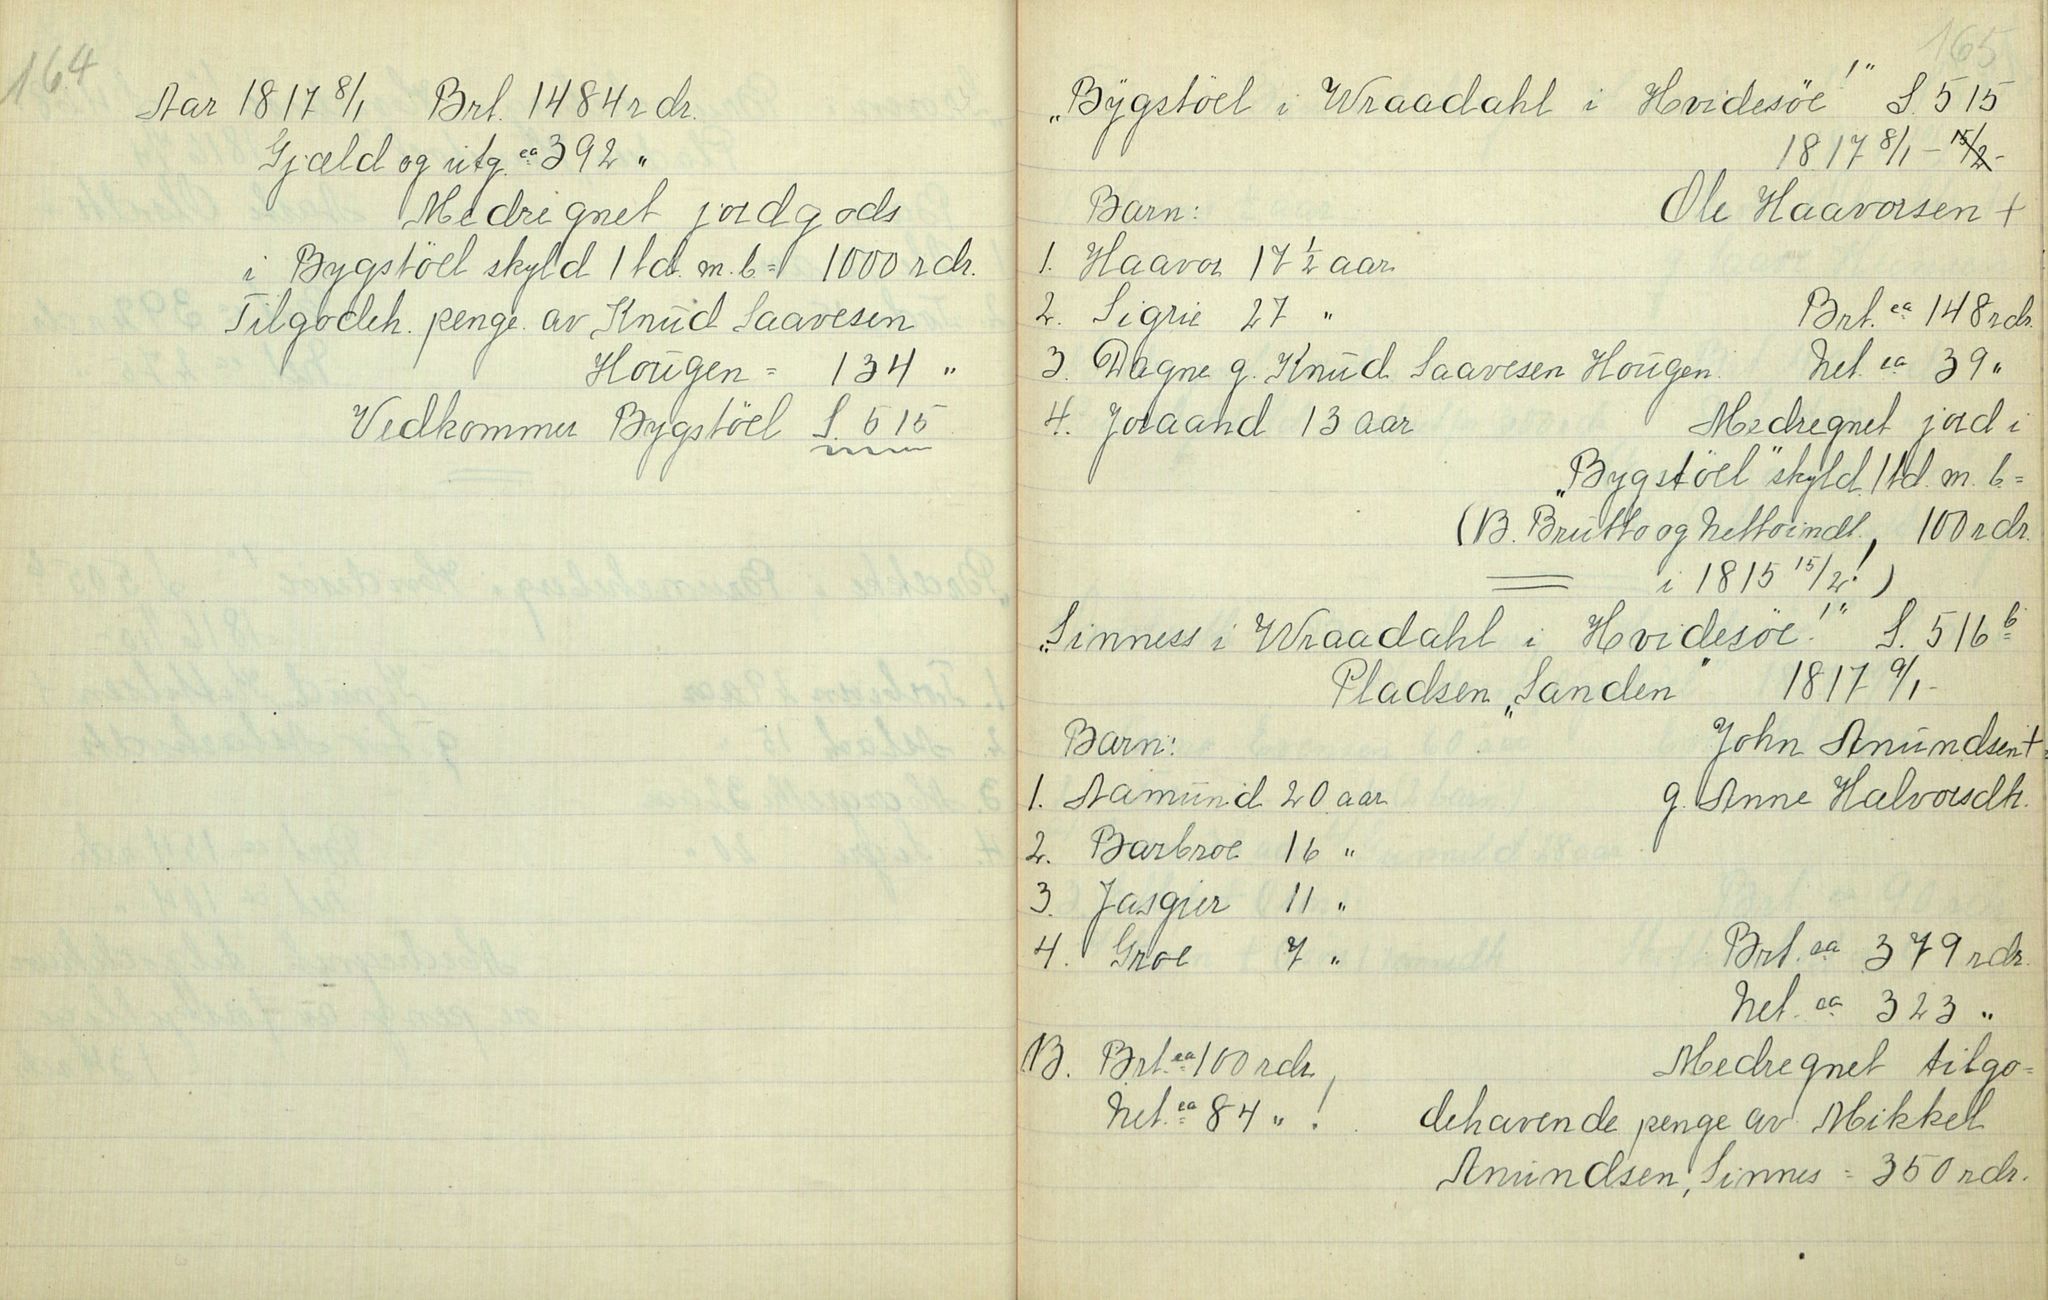 164
Aar 1817 8/1 Brt. 1484 rdr.
Gjæld og utg. ca 392 "
Medregnet jordgods
i Bygstöel skyld 1 td. m. b = 1000 rdr.
Tilgodeh. penge av Knud Saavesen
Hougen = 134 "
Vedkommer Bygstöel S. 515
165
"Bygstöel i Wraadahl i Hvidesöe!" S. 515
1817 8/1 - 15/2 -
Barn: Ole Haavorsen +
1. Haavor 17 1/2 aar
2. Sigrie 27 " Brt. ca 148 rdr.
3. Dagne g. Knud Saavesen Hougen. Net. ca 39 "
4. Joraand 13 aar Medregnet jord i
"Bygstöel" skyld 1 td. m. b. =
(B. Brutto og Nettoindt., 100 rdr.
i 1815 15/2!)
"Sinness i Wraadahl i Hvidesöe!" S. 516 b
Pladsen "Sanden" 1817 9/1 -
Barn: John Anundsen +
1. Aamund 20 aar g. Anne Halvorsdtr.
2. Barbroe 16 "
3. Jasgier 11 "
4. Groe 7 " Brt. ca 379 rdr.
Net. ca 323 "
B. Brt. ca 100 rdr. Medregnet tilgo=
Net. ca 84 " ! dehavende penge av Mikkel
Anundsen, Sinnes = 350 rdr.